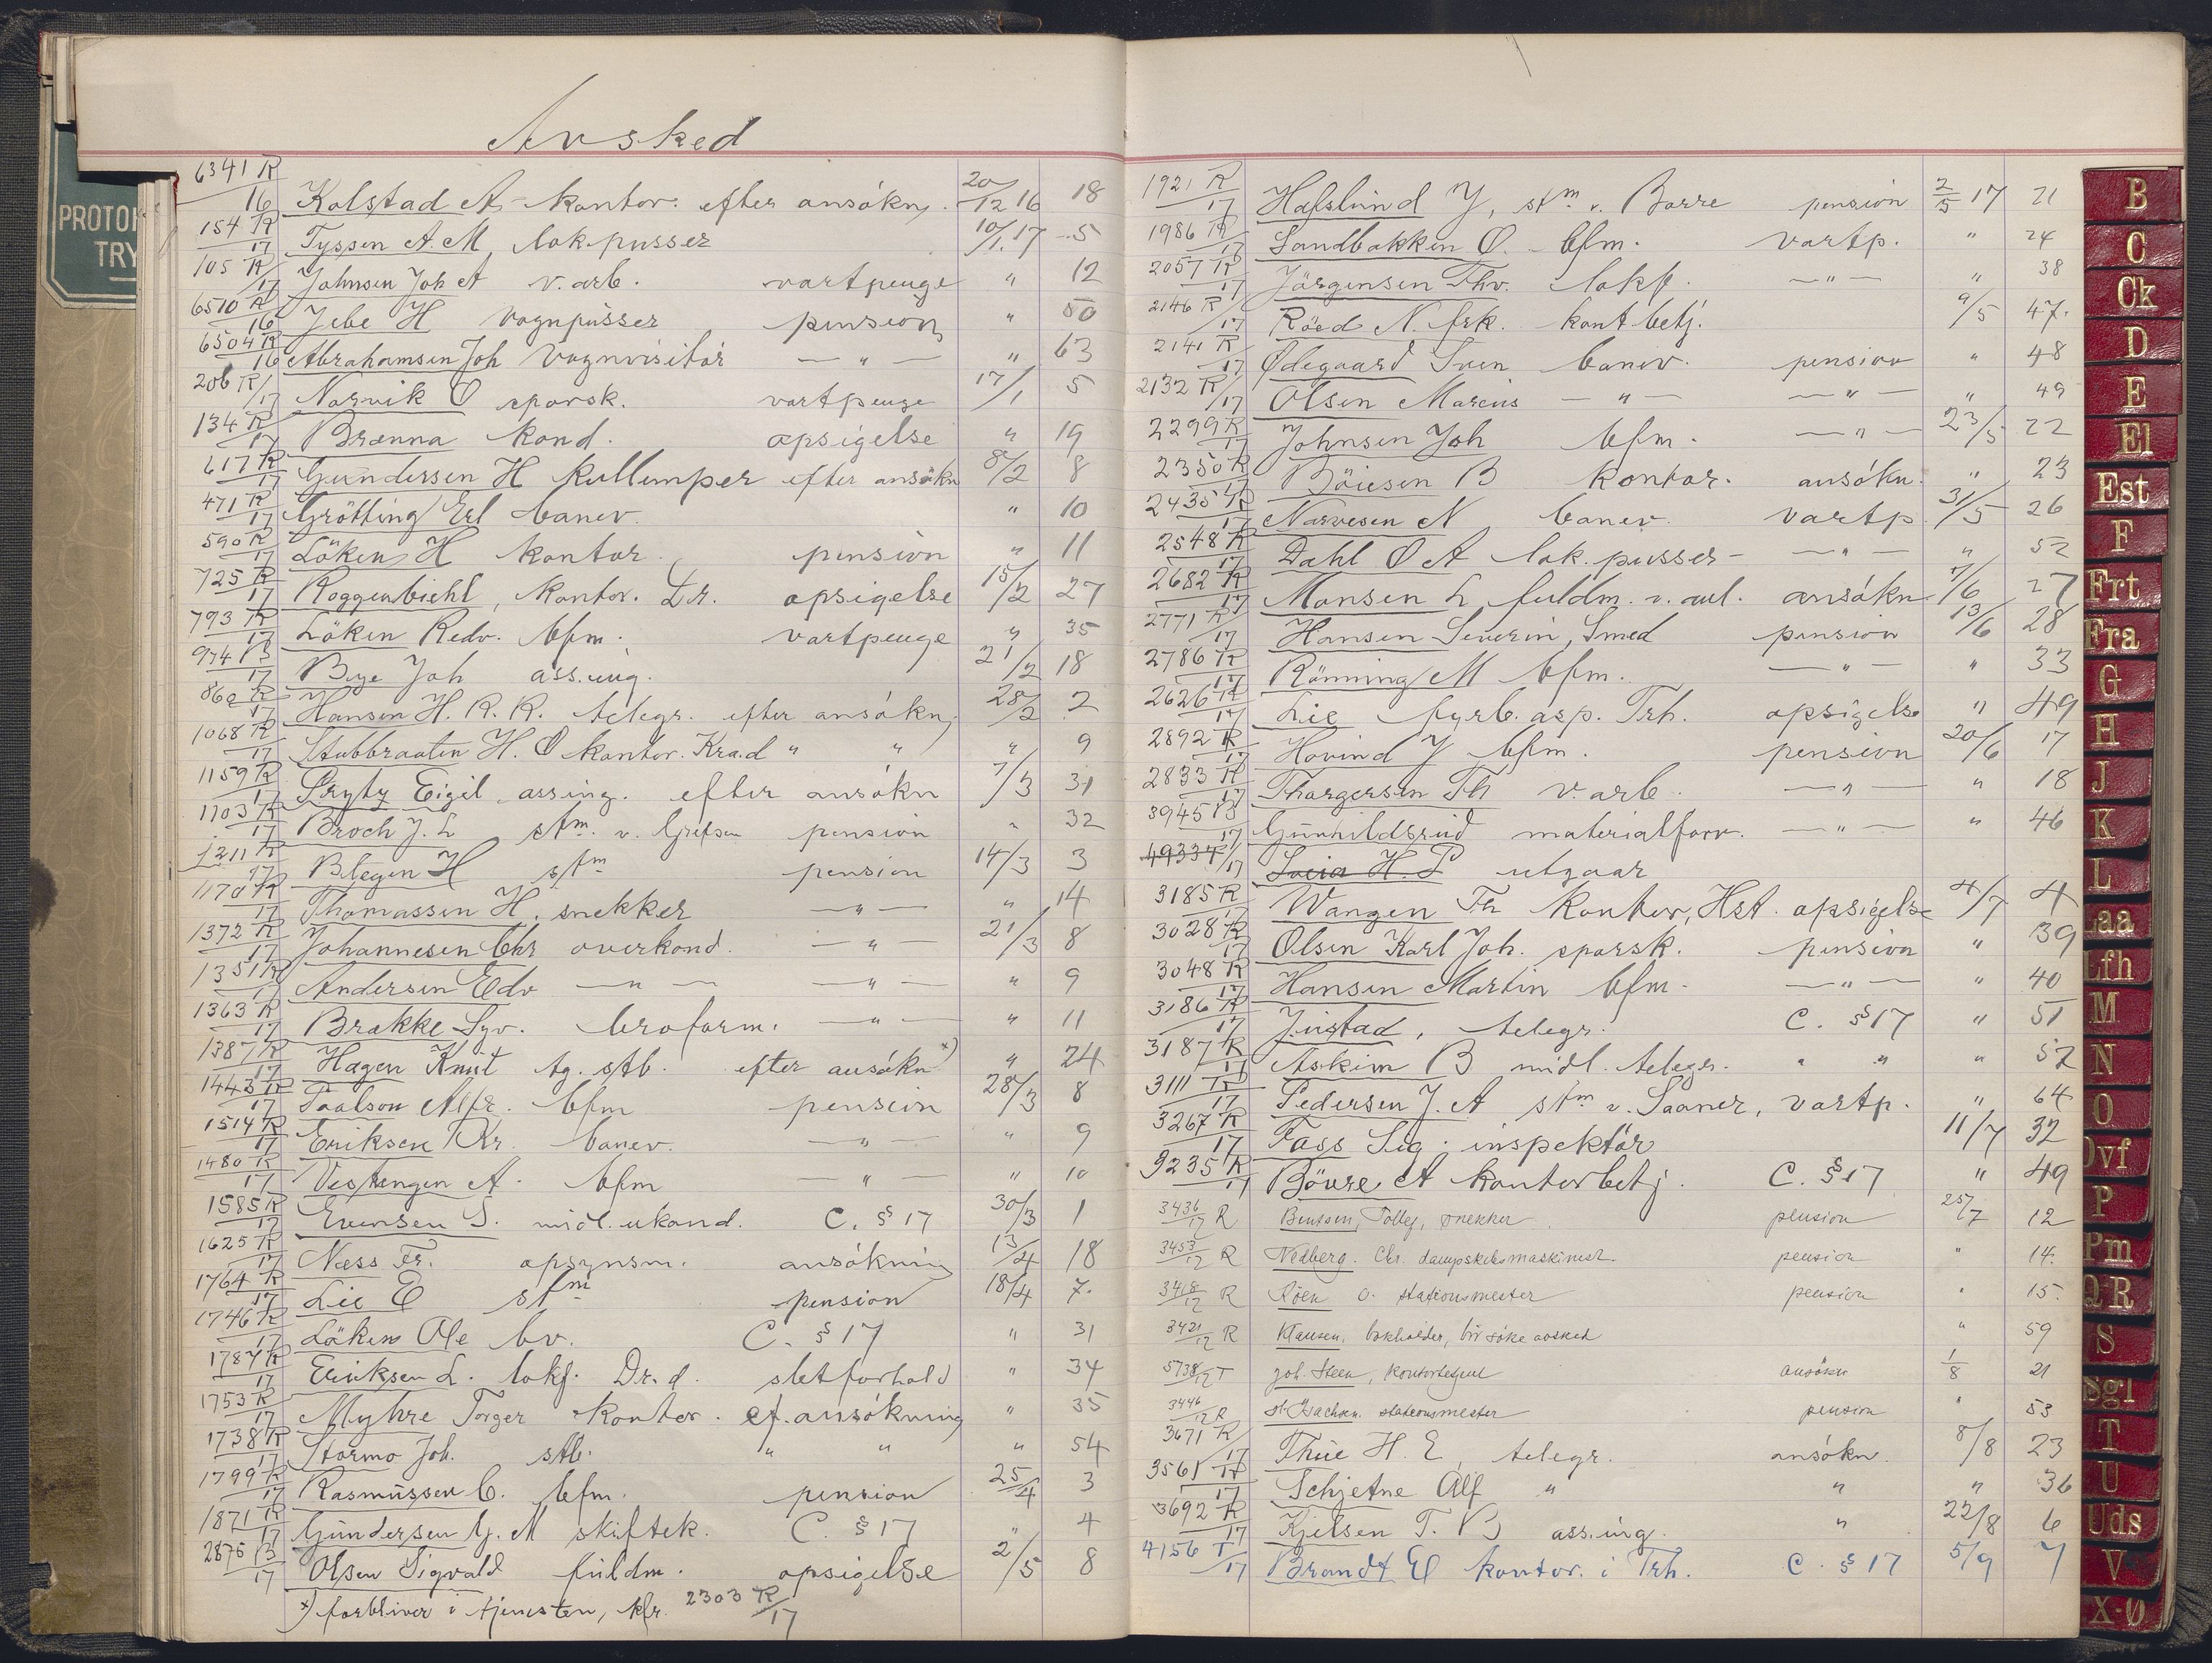 PROTOK
TRY
Avsked
6341 R/16 Kolstad A. kontor. efter ansökn. 20/12 16 18
154 R/17 Tyssen A. M. lok.pusser 10/1 17 5
105 R/17 Johnsen Joh A v. arb. vartpenge " 12
6510 R/16 Jebe H Vognpusser pension " 50
6504 R/16 Abrahamsen Joh Vognvisitör — " — " 63
206 R/17 Narvik O sporsk. vartpenge 17/1 5
134 R/17 Brænna kond. opsigelse " 19
617 R/17 Gundersen H kullemper efter ansökn 8/2 8
471 R/17 Grötting Erl banev. " 10
590 R/17 Löken H kontor. pension " 11
725 R/17 Roggenbiehl, kontor. Dr. opsigelse 15/2 27
793 R/17 Löken Redv. bfm. vartpenge " 35
974 B/17 Bye Joh ass.ing. 21/2 18
860 R/17 Hansen H. R. R. telegr. efter ansökn. 28/2 2
1068 R/17 Stubbraaten H. O kontor. Kra.d " " " 9
1159 R/17 Pryty Eigil ass.ing. efter ansökn 7/3 31
1103 R/17 Broch J. L stm. v. Grefsen pension " 32
1211 R/17 Blegen H stm pension 14/3 3
1170 R/17 Thomassen H. snekker — " — " 14
1372 R/17 Johannesen Chr overkond. — " — 21/3 8
1351 R/17 Andersen Edv — " — — " — " 9
1363 R/17 Brække Syv. broform. — " — " 11
1387 R/17 Hagen Knut tg. stb. efter ansökn x) " 24
1443 R/17 Paalson Alfr. bfm pension 28/3 8
1514 R/17 Eriksen Kr. banev. — " — " 9
1480 R/17 Vestengen A. bfm — " — " 10
1585 R/17 Evensen S. midl. ukond. C. § 17 30/3 1
1625 R/17 Næss Fr. opsynsm. ansökning 13/4 18
1764 R/17 Lie E stm pension 18/4 7.
1746 R/17 Löken Ole bv. C. § 17 " 31
1787 R/17 Eriksen L. lokf. Dr. d. slet forhold " 34
1753 R/17 Myhre Torger kontor. ef. ansökning " 35
1738 R/17 Stormo Joh. stb. " " " 54
1799 R/17 Rasmussen C. bfm. pension 25/4 3
1871 R/17 Gundersen G. M skiftek. C. § 17 " 4
2876 B/17 Olsen Sigvald fuldm. opsigelse 2/5 8
x) forbliver i tjenesten, kfr. 2303 R/17
1921 R/17 Hafslund J, stm v. Borre pension 2/5 17 21
1986 R/17 Sandbakken O. bfm. vartp. " 24
2057 R/17 Jörgensen Thv. lokf. — " — " 38
2146 R/17 Röed N. frk. kontbetj. 9/5 47.
2141 R/17 Ödegaard Sven banev. pension " 48
2132 R/17 Olsen Marcus — " — — " — " 49
2299 R/17 Johnsen Joh bfm. — " — 23/5 22
2350 R/17 Böiesen B kontor. ansökn. " 23
2435 R/17 Narvesen N banev. vartp 31/5 26
2548 R/17 Dahl O A lok.pusser — " — " 52
2682 R/17 Monsen L fuldm. v. anl. ansökn 7/6 27
2771 R/17 Hansen Severin, Smed pension 13/6 28
2786 R/17 Rönning M bfm. — " — " 33
2626 R/17 Lie fyrb. asp. Trh. opsigelse " 49
2892 R/17 Hovind J bfm. pension 20/6 17
2833 R/17 Thorgersen Th v. arb. — " — " 18
3945 B/17 Gunhildsrud materialforv. — " — " 46
4933 /17 H. P utgaar
3185 R/17 Wangen Th kontor, Hst. opsigelse 4/7 4
3028 R/17 Olsen Karl Joh. sporsk. pension " 39
3048 R/17 Hansen Martin bfm. — " — " 40
3186 R/17 Justad, telegr. C. § 17 " 51
3187 R/17 Askim B midl. telegr. " " " 52
3111 R/17 Pedersen J. A stm v. Saaner, vartp. " 64
3267 R/17 Fass Sig. inspektör 11/7 32
3235 R/17 Bövre A kontorbetj. C. § 17 " 49
3436/17 R Bentsen, Tolley, snekker pension 25/7 12
3453/17 R Nedberg. Chr. dampskibsmaskinist pension " 14.
3418/17 R Röen O. stationsmester pension " 15.
3421/17 R Klausen. bokholder, bör söke avsked " 59
5738/17 T Joh. Steen, kontorbetjent ansökn 1/8 21
3446/17 R stationsmester pension " 53
3671 R/17 Thue H. E, telegr. ansökn. 8/8 23
3561 R/17 Schjetne Alf " " " 36
3692 R/17 Kjelsen T. B ass.ing. " 22/8 6
4156 T/17 Brandt El kontor. i Trh. C. § 17 5/9 7
B
C
Ck
D
E
El
Est
F
Frt
Fra
G
H
J
K
L
Laa
Lfh
M
N
O
Ovf
P
Pm
QR
S
Sgl
T
U
Uds
V
X-Ø